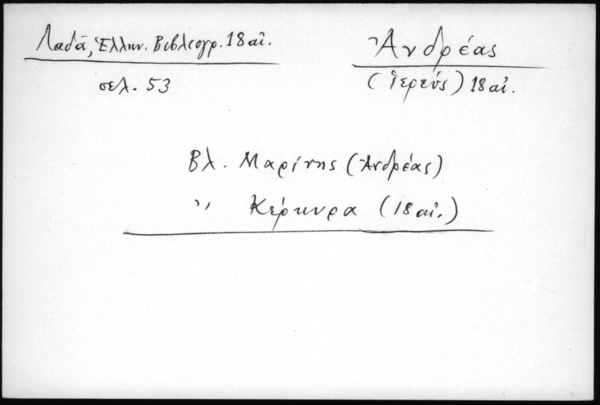 Λαδά, Ἑλλην. Βιβλιογρ. 18 αἰ.
σελ. 53
Ἀνδρέας
(ἱερεύς) 18 αἰ.
Βλ. Μαρίνης (Ἀνδρέας)
〃 Κέρκυρα (18 αἰ.)